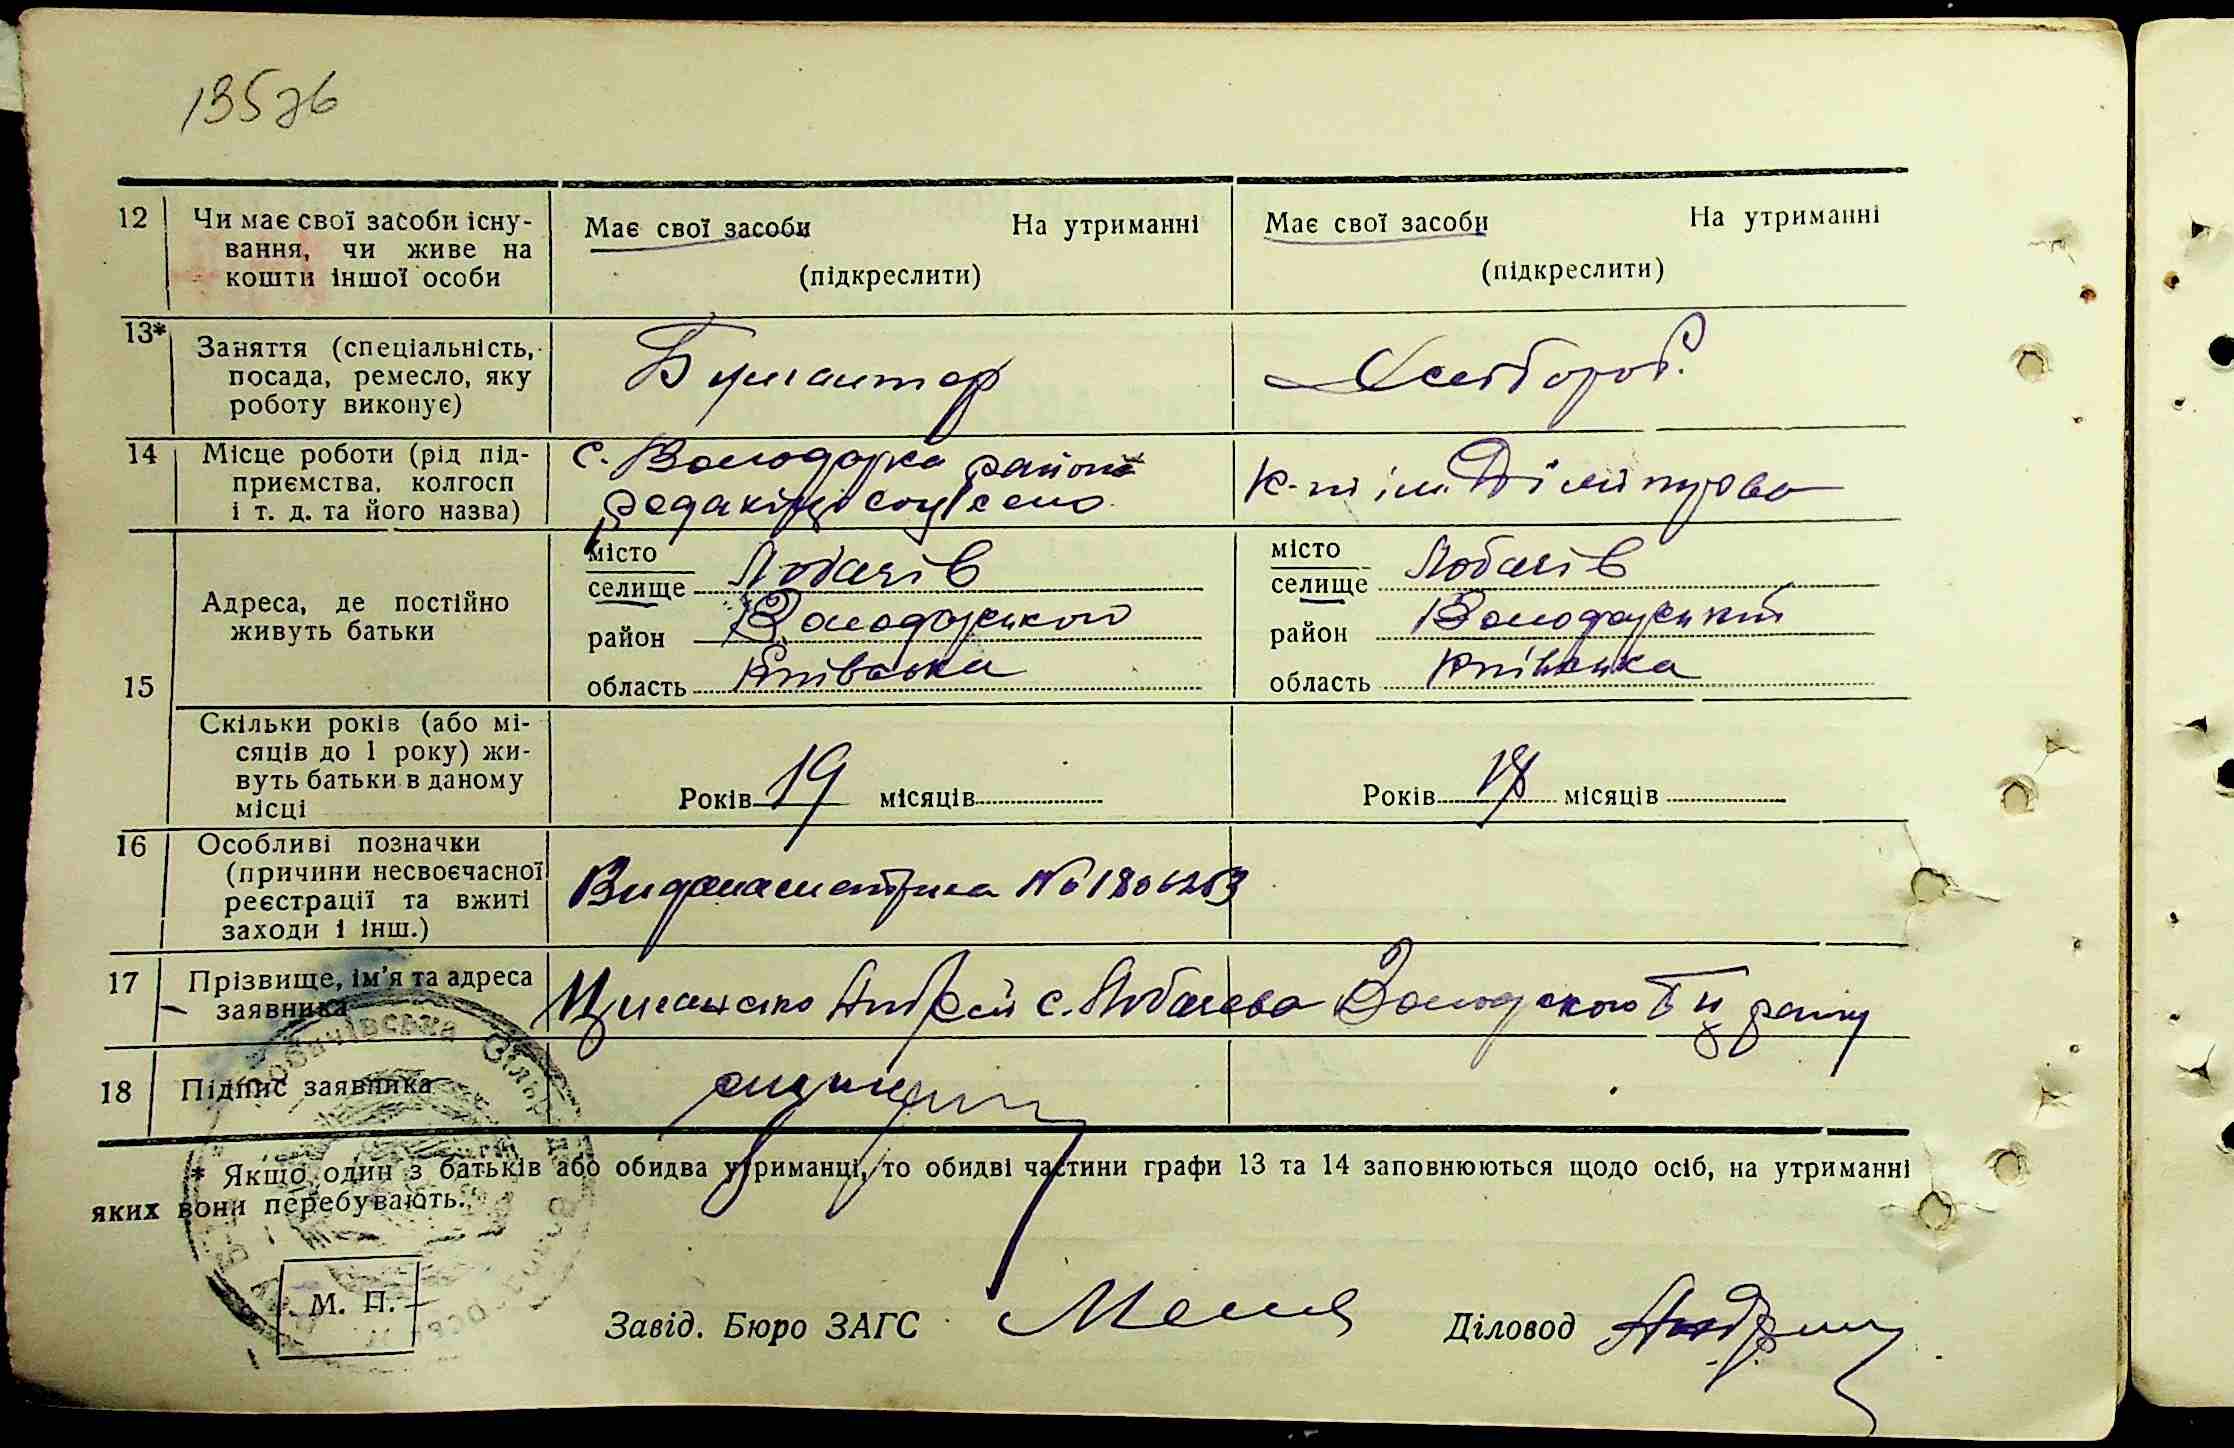 135зв
12 Чи має свої засоби існу-
вання, чи живе на
кошти іншої особи
Має свої засоби На утриманні
(підкреслити)
Має свої засоби На утриманні
(підкреслити)
13* Заняття (спеціальність,
посада, ремесло, яку
роботу виконує)
Бухгалтер
Хлібороб.
14 Місце роботи (рід під-
приємства, колгосп
і т. д. та його назва)
с. Володарка район
редакція соц село
к-п ім. Дімітрова
15 Адреса, де постійно
живуть батьки
місто
селище Лобачів
район Володарського
область Київська
місто
селище Лобачів
район Володарський
область Київська
Скільки років (або мі-
сяців до 1 року) жи-
вуть батьки в даному
місці
Років 19 місяців
Років 18 місяців
16 Особливі позначки
(причини несвоєчасної
реєстрації та вжиті
заходи і інш.)
Видана метрика №
17 Прізвище, ім'я та адреса
заявника
Циганенко Андрій с. Лобачева
18 Підпис заявника
* Якщо один з батьків або обидва утриманці, то обидві частини графи 13 та 14 заповнюються щодо осіб, на утриманні
яких вони перебувають.
М. П.
Завід. Бюро ЗАГС
Діловод